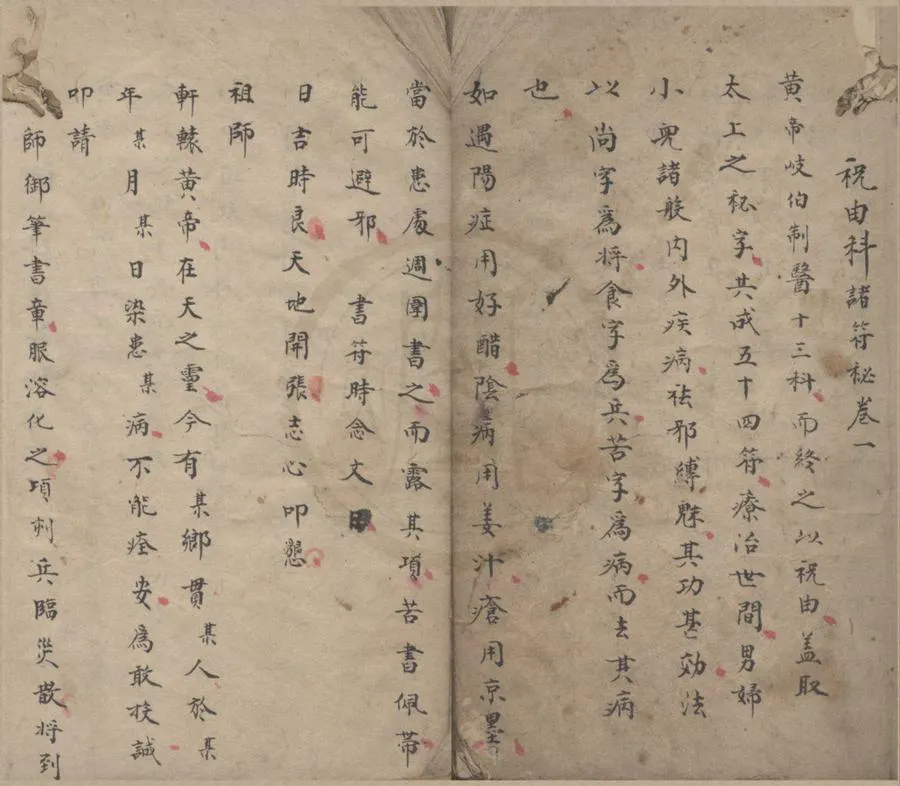 祝由科諸符秘卷一
黄帝岐伯制醫十三科而終之以祝由盖取
太上之秘字其成五十四符療治世間男婦
小兒諸般内外疾病祛邪縛魅其功甚効法
以尚字爲將食字爲兵苦字爲病而去其病
也
如遇陽症用好醋陰病用姜汁瘡用京墨
當於患處週圍書之而露其項苦書佩带
能可避邪 書符時念文
日吉時良天地開張志心叩懇
祖師
軒轅黄帝在天之靈今有某鄉貫某人於某
年某月某日染患某病不能痊安爲敢投誠
叩請
師御筆書章服溶化之項刺兵臨災散将到